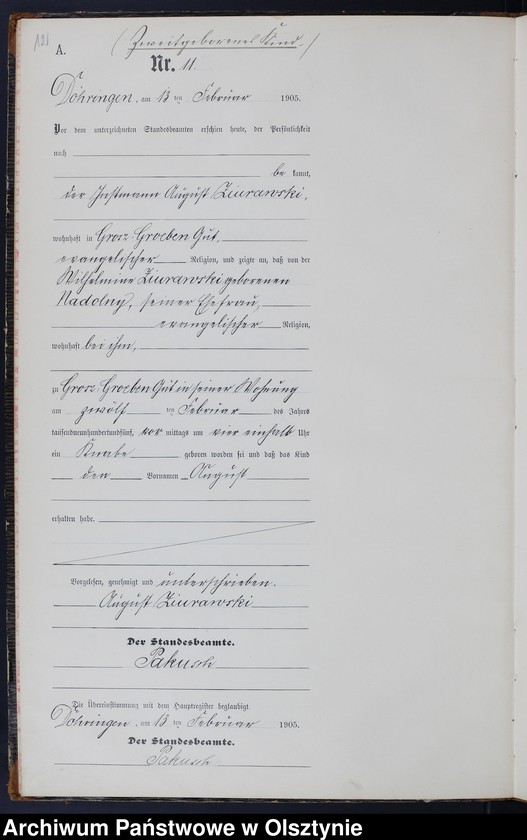 121
A.
(Zweitgeborenes Kind.)
Nr. 11.
Döhringen, am 13ten Februar 1905.
Vor dem unterzeichneten Standesbeamten erschien heute, der Persönlichkeit
nach
bekannt,
der Instmann August Ziurawski,
wohnhaft in Grosz Groeben Gut,
evangelischer Religion, und zeigte an, daß von der
Wilhelmine Ziurawski geborenen
Nadolny, seiner Ehefrau,
evangelischer Religion,
wohnhaft bei ihm,
zu Grosz Groeben Gut in seiner Wohnung
am zwölften Februar des Jahres
tausendneunhundertundfünf, vormittags um vier einhalb Uhr
ein Knabe geboren worden sei und daß das Kind
den Vornamen August
erhalten habe.
Vorgelesen, genehmigt und unterschrieben.
August Ziurawski
Der Standesbeamte.
Pakusch
Die Übereinstimmung mit dem Hauptregister beglaubigt.
Döhringen, am 13ten Februar 1905.
Der Standesbeamte.
Pakusch
Archiwum Państwowe w Olsztynie